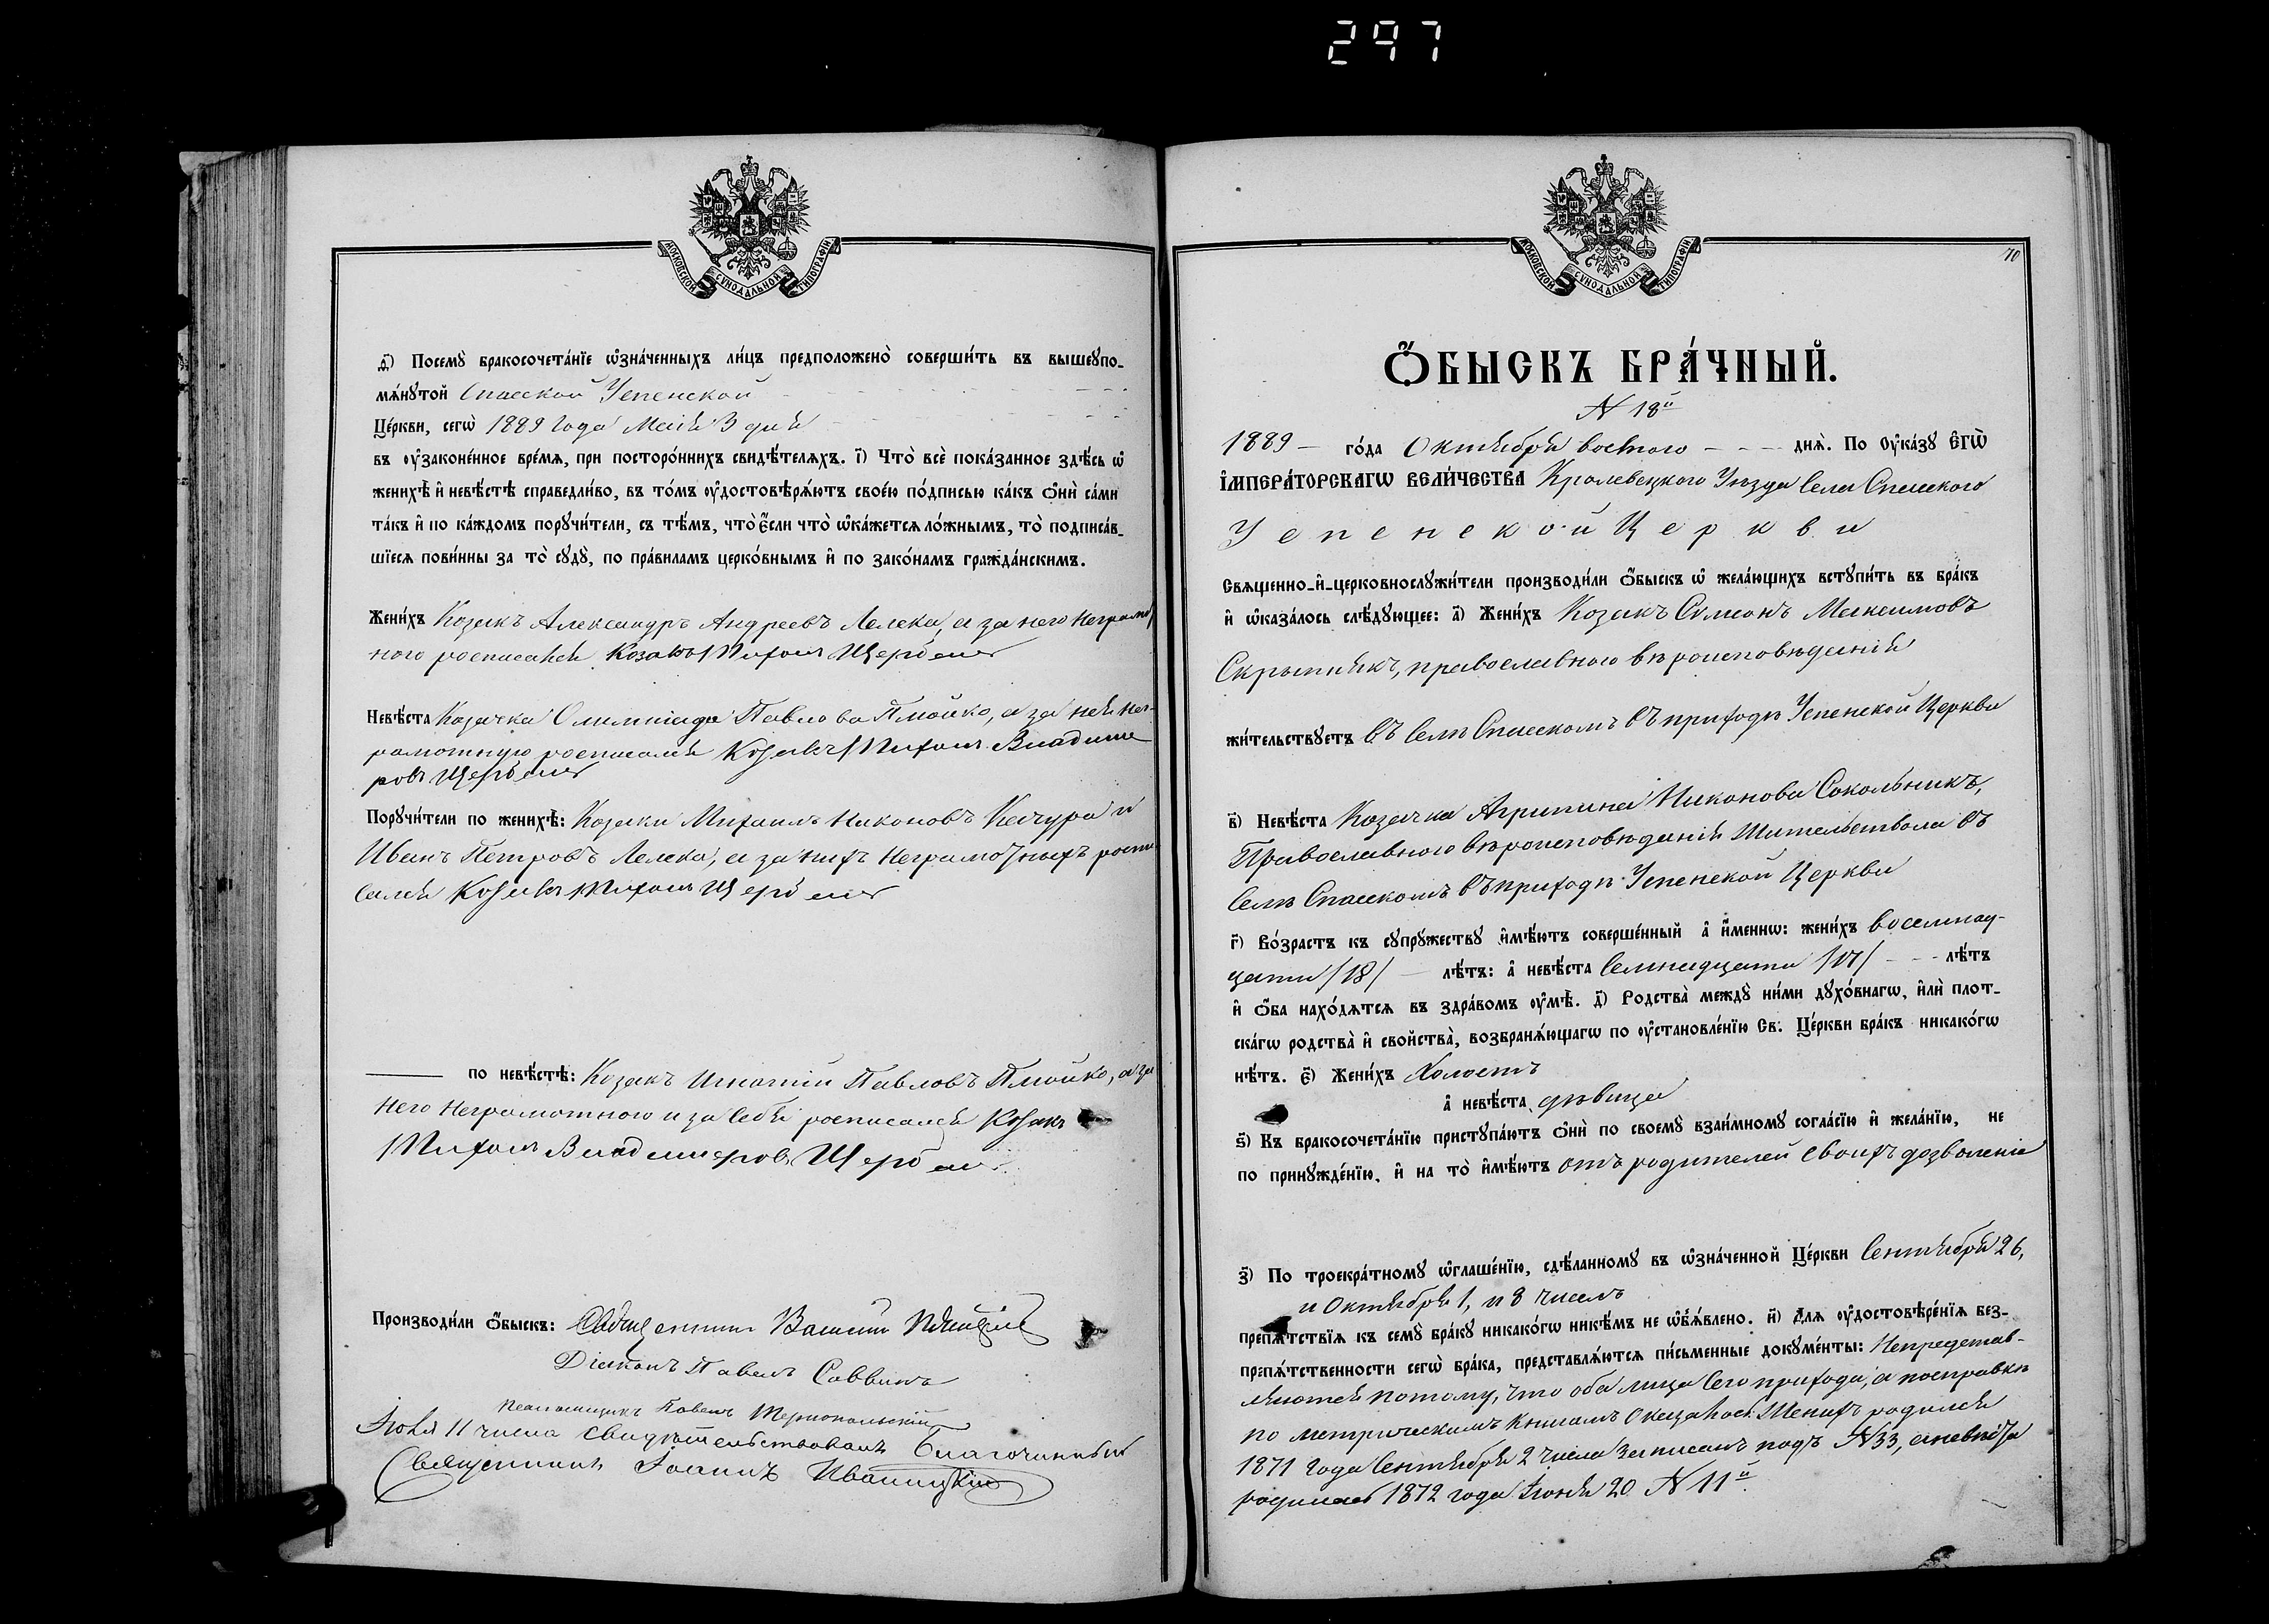 297
МОСКОВСКОЙ СУНОДАЛЬНОЙ ТИПОГРАФІИ
ѳ҃) Посемꙋ̀ бракосочета́нїе ѡ҆зна́ченныхъ ли́цъ предположено̀ соверши́ть въ вышеꙋпо-
мѧ́нꙋтой Спасской Успенской
Це́ркви, сегѡ̀ 1889 года Мая 3 дня
въ ᲂу҆законе́нное вре́мѧ, при посторо́ннихъ свидѣ́телѧхъ. і҃) Что̀ всѐ пока́занное здѣ́сь ѡ҆
женихѣ̀ и҆ невѣ́стѣ справедли́во, въ то́мъ ᲂу҆достовѣрѧ́ютъ свое́ю по́дписью ка́къ ѻ҆нѝ са́ми
та́къ и҆ по ка́ждомъ порꙋчи́тели, съ тѣ́мъ, что̀ є҆́сли что̀ ѡ҆ка́жетсѧ ло́жнымъ, то̀ подписа́в-
шїесѧ пови́нны за то̀ сꙋдꙋ̀, по пра́виламъ церко́внымъ и҆ по зако́намъ гражда́нскимъ.
Жени́хъ Козакъ Александръ Андреевъ Лелека, а за него неграмот
ного росписался Козакъ Тихонъ Щербань
Невѣ́ста Козачка Олимпіяда Павлова Плойко, а за нея нег-
рамотную росписался Козакъ Тихонъ Владиме
ровъ Щербань
Порꙋчи́тели по женихѣ̀: Козаки Михаилъ Никоновъ Качура и
Иванъ Петровъ Лелека, а за нихъ неграмотныхъ роспи
сался Козакъ Тихонъ Щербань
по невѣ́стѣ: Козакъ Игнатій Павловъ Плойко, а за
него неграмотного и за себя росписался Козакъ
Тихонъ Владимеровъ Щербань
Производи́ли ѻ҆́быскъ: Священникъ Василій
Діяконъ Павелъ Саввинъ
Псаломщикъ Павелъ Тернопольскій
Іюля 11 числа свидѣтельствовалъ Благочинный
Священникъ Іоаннъ Иваницкій
МОСКОВСКОЙ СУНОДАЛЬНОЙ ТИПОГРАФІИ
70
Ѻ҆́БЫСКЪ БРА́ЧНЫЙ.
N 18й
1889 – го́да Октября восмого – – – днѧ̀. По Оу҆ка́зꙋ Є҆ГѠ̀
І҆МПЕРА́ТОРСКАГѠ ВЕЛИ́ЧЕСТВА Кролевецкого Уѣзда села Спасского
Успенской Церкви
Свѧщенно-и҆-церковнослꙋжи́тели производи́ли ѻ҆́быскъ ѡ҆ жела́ющихъ встꙋпи́ть въ бра́къ
и҆ ѡ҆каза́лось слѣ́дꙋющее: а҃) Жени́хъ Козакъ Сѵмеонъ Максимовъ
Скрыпникъ, православного вѣроисповѣданія
жи́тельствꙋетъ въ селѣ Спасскомъ въ приходѣ Успенской Церкви
в҃) Невѣ́ста Козачка Агрипина Никонова Сокольникъ,
Православного вѣроисповѣданія жительствола въ
селѣ Спасскомъ въ приходѣ Успенской Церкви
г҃) Во́зрастъ къ сꙋпрꙋ́жествꙋ и҆мѣ́ютъ соверше́нный а҆ и҆́меннѡ: жени́хъ восемнад-
цати /18/ – лѣ́тъ: а҆ невѣ́ста семнадцати /17/ – – – лѣ́тъ
и҆ ѻ҆́ба нахо́дѧтсѧ въ здра́вомъ ᲂу҆мѣ̀. д҃) Родства̀ междꙋ̀ ни́ми дꙋхо́внагѡ, и҆лѝ плот-
ска́гѡ родства̀ и҆ свойства̀, возбранѧ́ющагѡ по ᲂу҆становле́нїю Св. Це́ркви бра́къ никако́гѡ
нѣ́тъ. є҃) Жени́хъ Холостъ
а҆ невѣ́ста дѣвица
ѕ҃) Къ бракосочета́нїю пристꙋпа́ютъ ѻ҆нѝ по своемꙋ̀ взаи́мномꙋ согла́сїю и҆ жела́нїю, не
по принꙋжде́нїю, и҆ на то̀ и҆мѣ́ютъ отъ родителей своихъ дозволеніе
з҃) По троекра́тномꙋ ѡ҆глаше́нїю, сдѣ́ланномꙋ въ ѡ҆зна́ченной Це́ркви Сентября 26,
и Октября 1, и 8 числъ
препѧ́тствїѧ къ семꙋ̀ бра́кꙋ никако́гѡ никѣ́мъ не ѡ҆б̾ѧ́влено. и҃) Длѧ ᲂу҆достовѣре́нїѧ без-
препѧ́тственности сегѡ̀ бра́ка, представлѧ́ютсѧ пи́сьменные докꙋме́нты: Непредстав-
ляются потому, что оба лица сего прихода, а посправкѣ
по метрическимъ книгамъ оказалось: Женихъ родился
1871 года Сентября 2 числа записанъ подъ N 33, а невѣста
родилась 1872 года Іюня 20 N 11й.